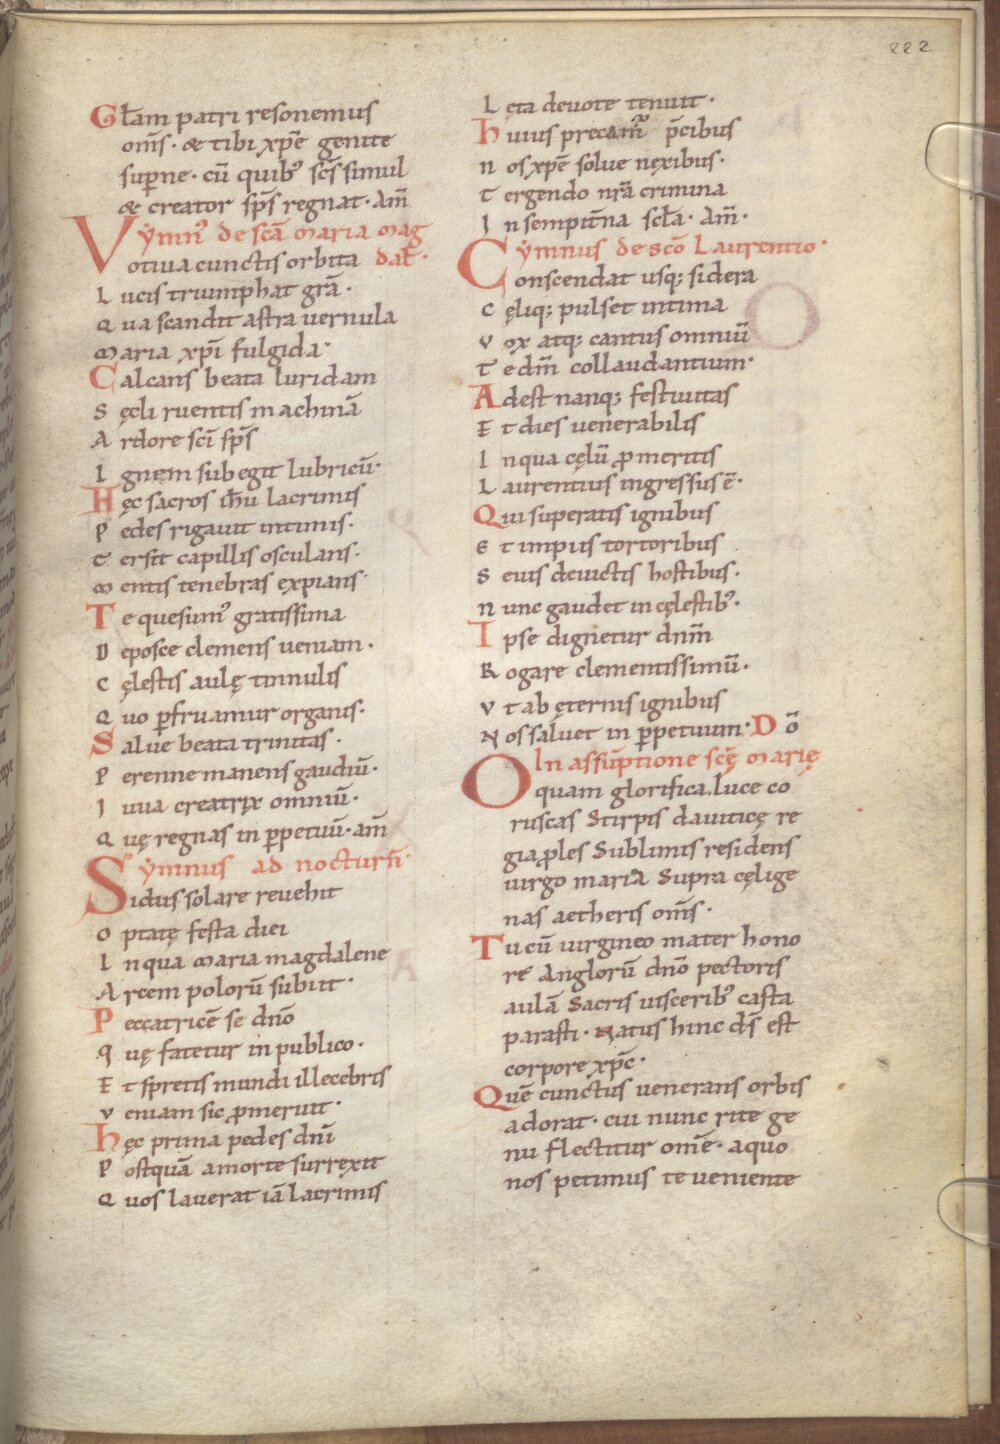 222
Głam patri resonemus
om̄s · & tibi xp̄e genite
sup̄ne · cū quib; sc̄s simul
& creator sp̄s regnat · Am̄
ymn' de scā maria mag
Votiua cunctis orbita dał ·
Lucis triumphat gr̄a ·
Qua scandit astra uernula
maria xp̄i fulgida ·
Calcans beata luridam
Sęcli ruentis machinā
Ardore sc̄i sp̄s
Ignem subegit lubricū ·
Hęc sacros ih̄u lacrimis
Pedes rigauit intimis ·
Tersit capillis osculans ·
mentis tenebras expians ·
Te quesum' gratissima
Deposce clemens ueniam ·
Cęlestis aulę tinnulis
Quo p̱fruamur organis ·
Salue beata trinitas ·
Perenne manens gaudiū ·
Iuua creatrix omniū ·
Quę regnas in p̱petuū · am̄
ymnus ad nocturn̄ ·
Sidus solare reuehit
Optatę festa diei
In qua maria magdalene
Arcem polorū subiit ·
Peccatricē se dn̄o
Quę fatetur in publico ·
Et spretis mundi illecebris
Veniam sic p̱meruit ·
Hęc prima pedes dn̄i
Postquā a morte surrexit
Quos lauerat iā lacrimis
Lęta deuote tenuit ·
Huius precam̄ p̄cibus
Nos xp̄e solue nęxibus ·
Tergendo nr̄a crimina
In sempit̄na sc̄la · Am̄ ·
ymnus de sc̄o Laurentio ·
Conscendat usq; sidera
Cęliq; pulset intima
Vox atq; cantus omniū
Te dm̄ collaudantium ·
Adest nanq; festiuitas
Et dies uenerabilis
In qua cęlū p̱ meritis
Laurentius ingressus ē ·
Qui superatis ignibus
Et impiis tortoribus
Seuis deuictis hostibus ·
Nunc gaudet in cęlestib; ·
Ipse dignetur dnm̄
Rogare clementissimū ·
Vt ab ęternis ignibus
Nos saluet in p̱petuum · D ō
In assūptione sc̄ę marię
O quam glorifica luce co
ruscas Stirpis dauiticę re
gia p̱les Sublimis residens
uirgo maria Supra cęlige
nas aetheris om̄s ·
Tu cū uirgineo mater hono
re Anglorū dn̄o pectoris
aulā Sacris uisceribʼ casta
parasti · Natus hinc d̄s est
corpore xp̄c ·
Quē cunctus uenerans orbis
adorat · cui nunc rite ge
nu flectitur om̄e · a quo
nos petimus te ueniente